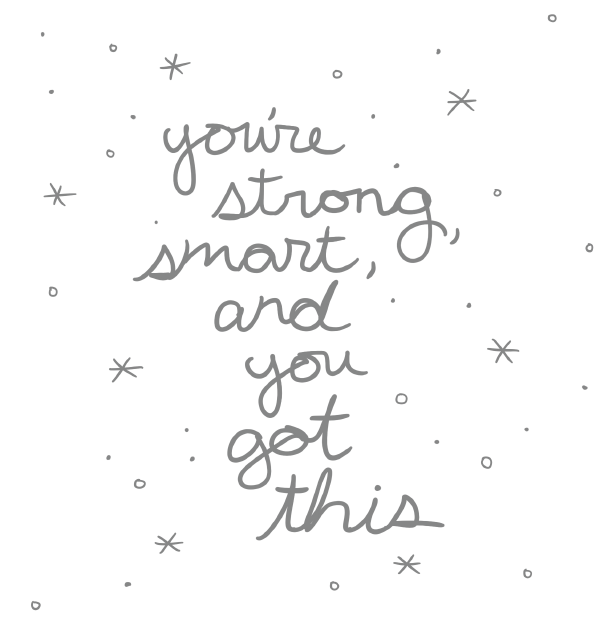 you're
strong,
smart,
and
you
got
this